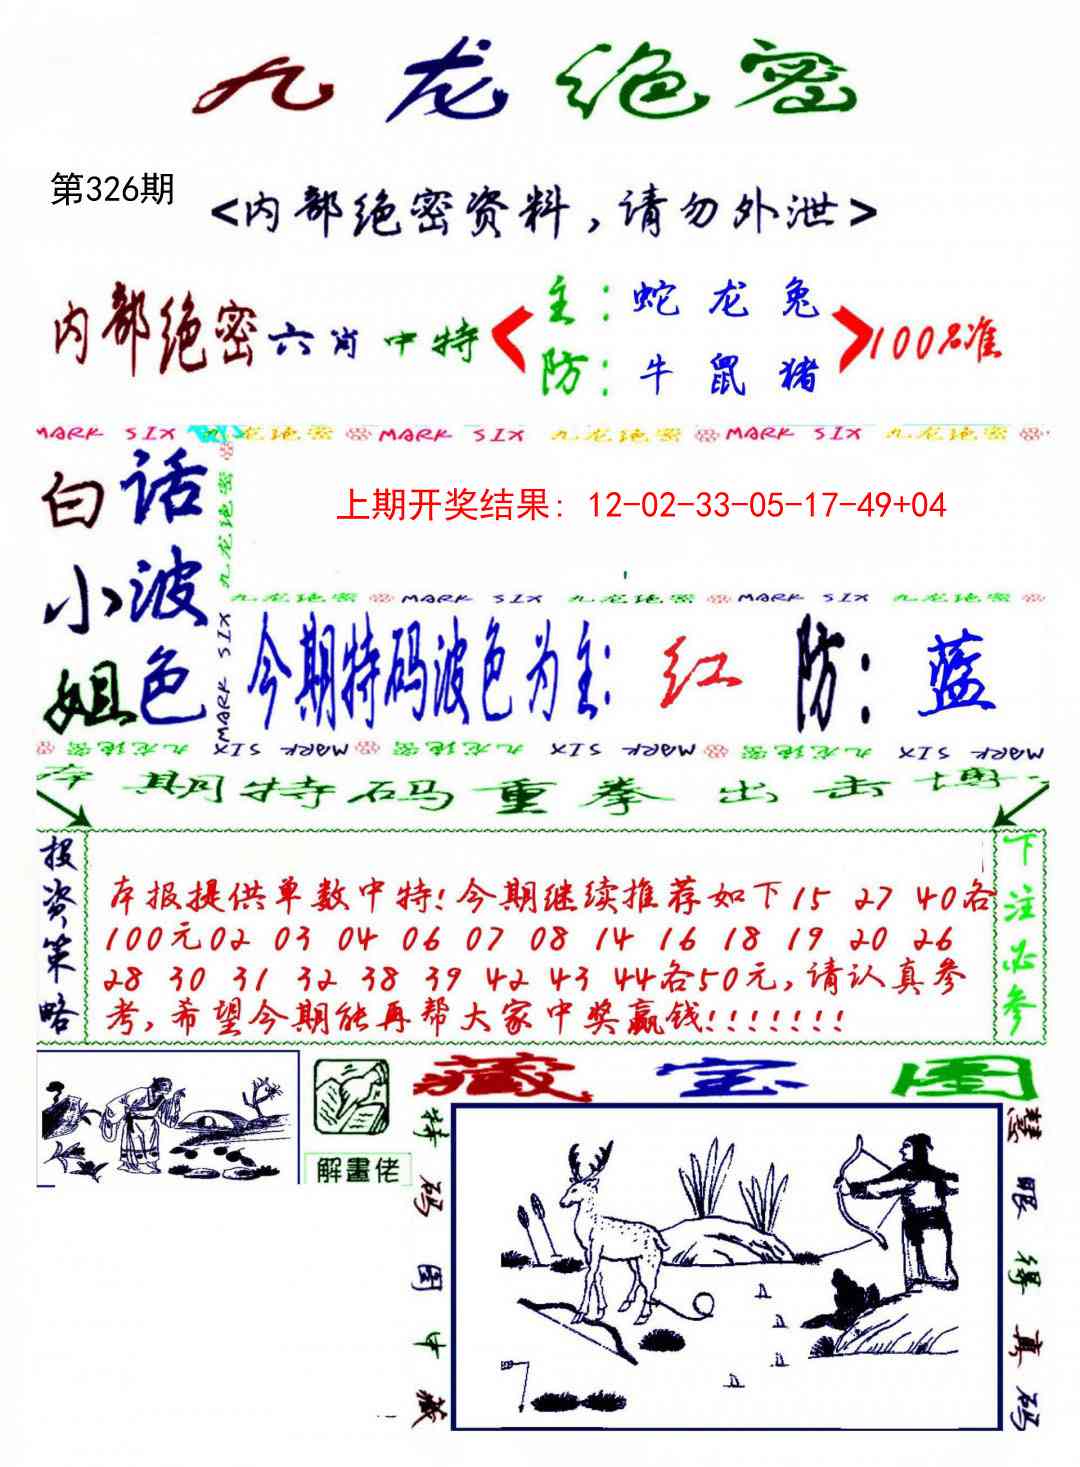 九龙绝密
第326期
<内部绝密资料,请勿外泄>
内部绝密六肖中特
主:蛇 龙 兔
防:牛 鼠 猪
100%准
MARK SIX 九龙绝密 MARK SIX 九龙绝密 MARK SIX 九龙绝密
白小姐
话波色
九龙绝密
MARK SIX
上期开奖结果: 12-02-33-05-17-49+04
九龙绝密 MARK SIX 九龙绝密 MARK SIX 九龙绝密
今期特码波色为主: 红 防: 蓝
九龙绝密 MARK SIX 九龙绝密 MARK SIX 九龙绝密 MARK SIX
本期特码重拳出击博
投资策略
本报提供单数中特!今期继续推荐如下15 27 40各
100元02 03 04 06 07 08 14 16 18 19 20 26
28 30 31 32 38 39 42 43 44各50元,请认真参
考,希望今期能再帮大家中奖赢钱!!!!!!!
下注必参
解畫佬
藏宝图
特码图中藏
慧眼得真码